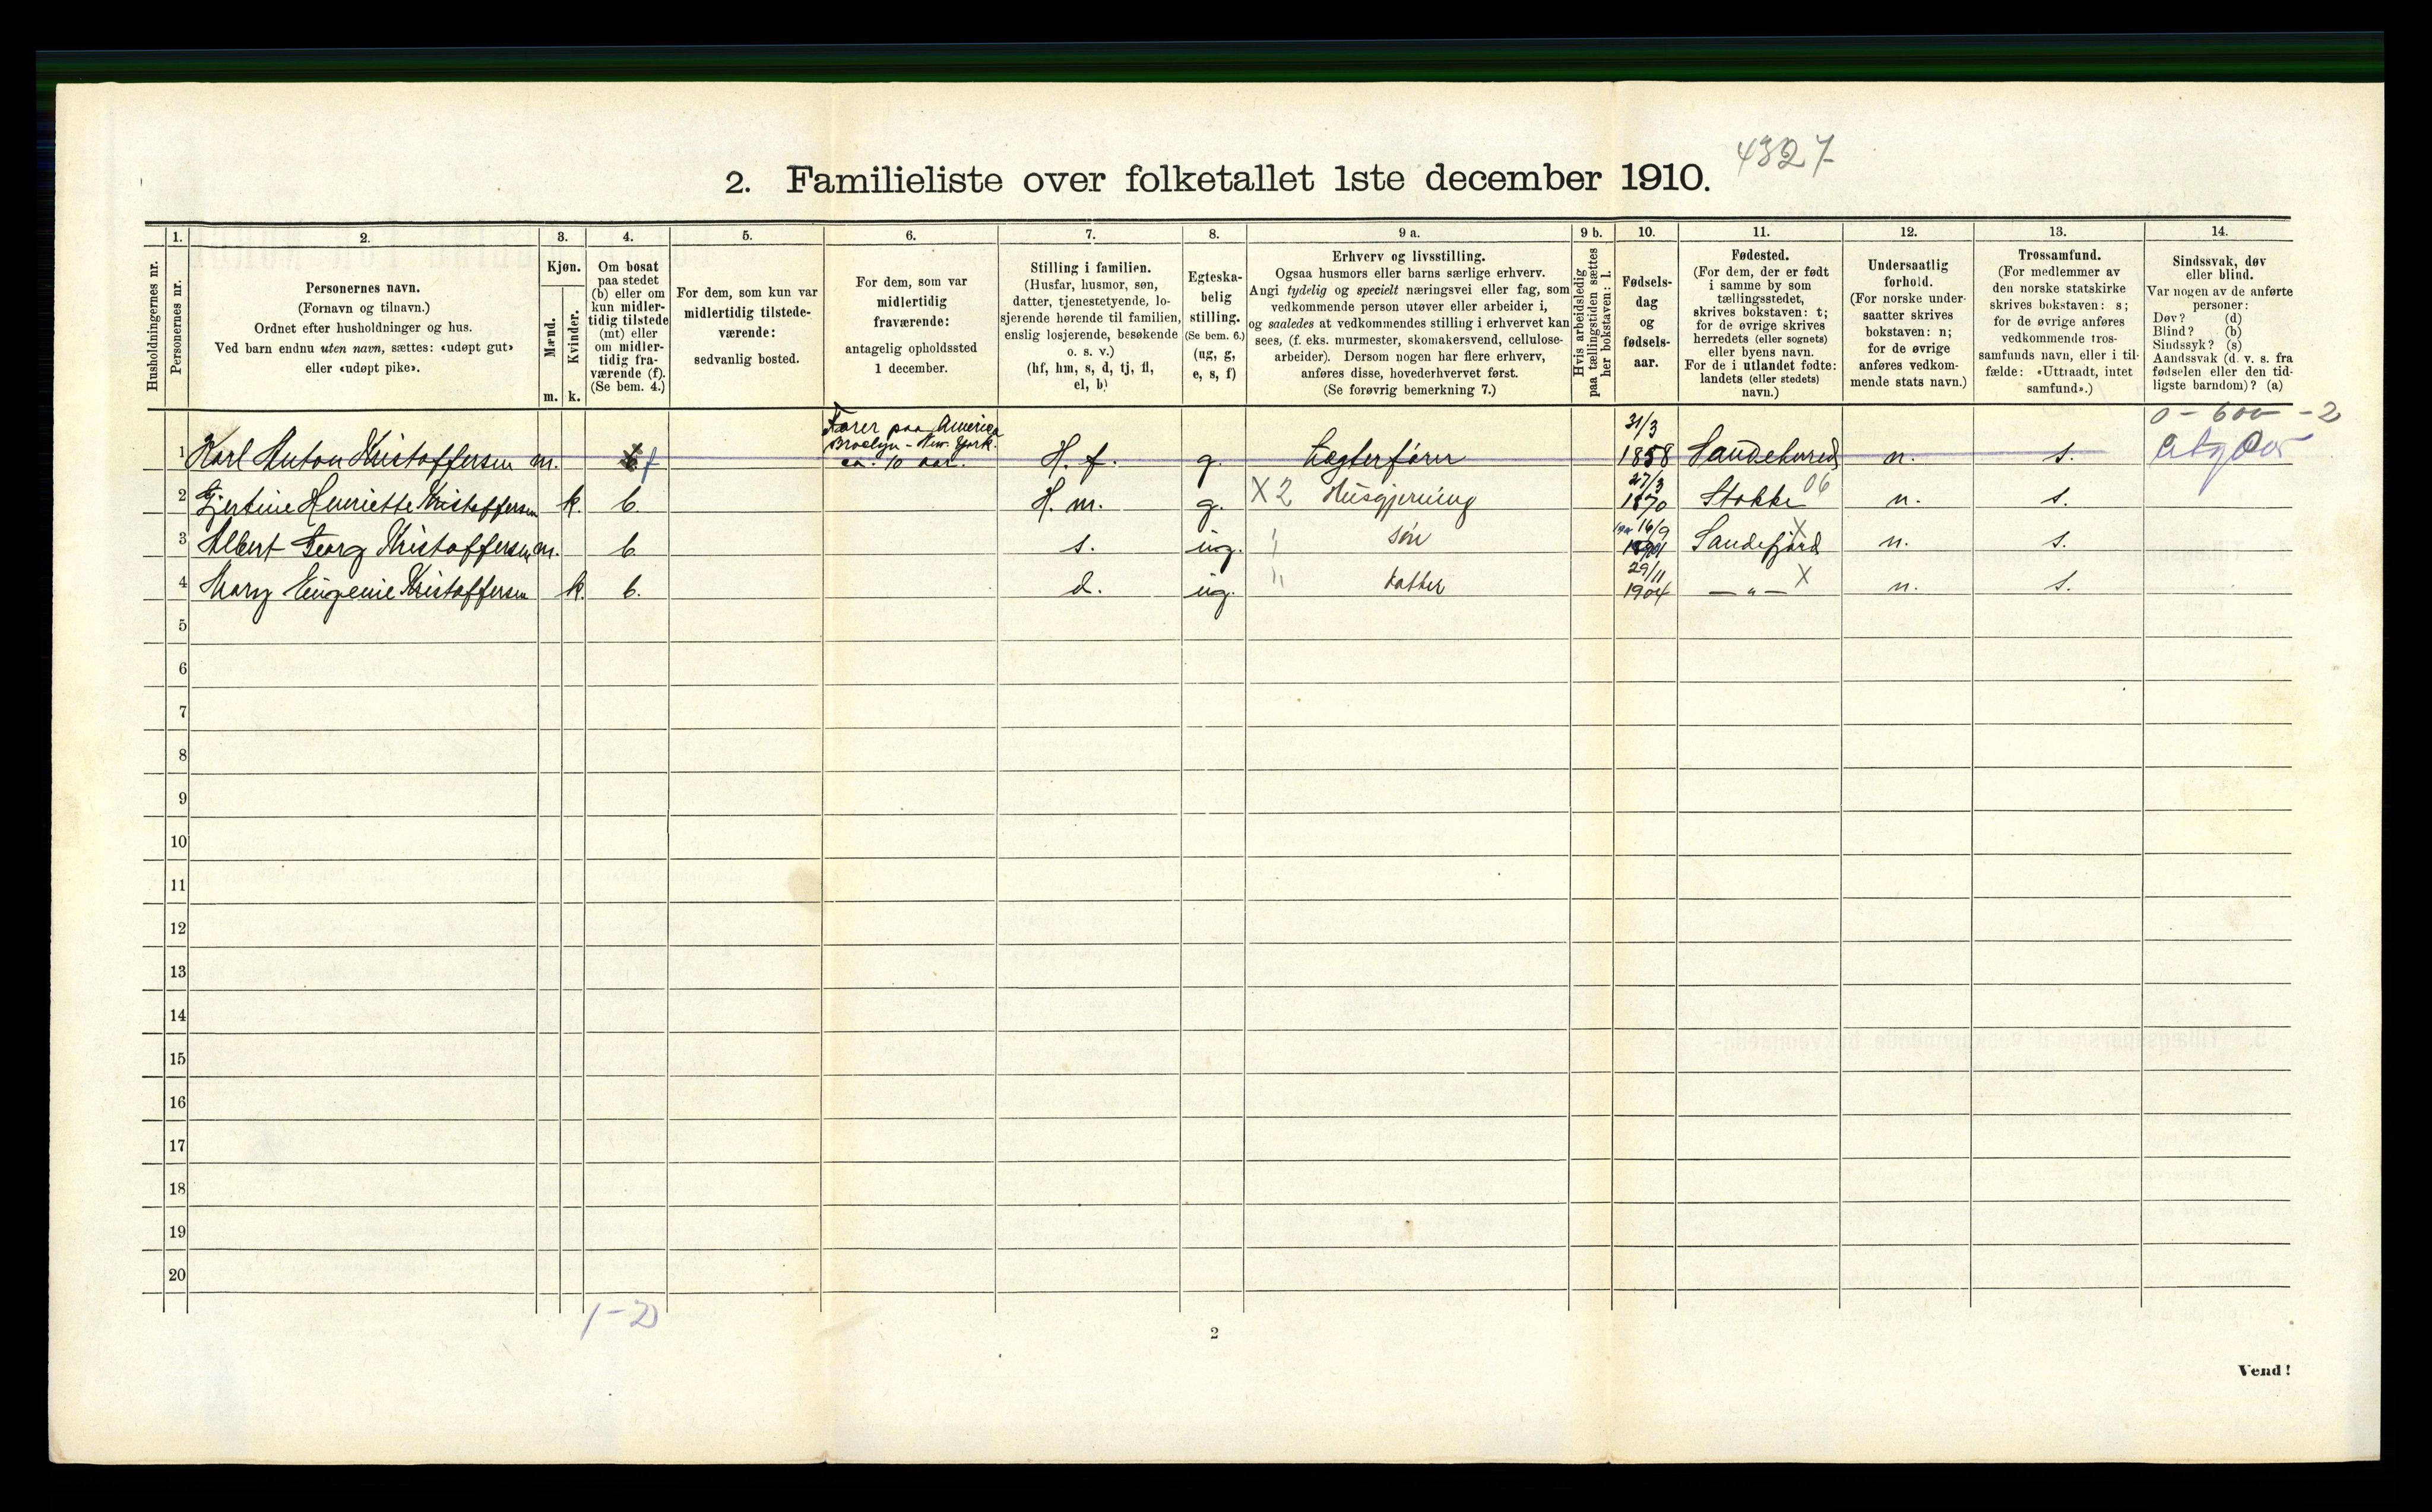 4327
2. Familieliste over folketallet 1ste december 1910.
Husholdningernes nr.
1.
Personernes nr.
2.
Personernes navn.
(Fornavn og tilnavn.)
Ordnet efter husholdninger og hus.
Ved barn endnu uten navn, sættes: «udøpt gut»
eller «udøpt pike».
3.
Kjøn.
Mænd.
Kvinder.
m. k.
4.
Om bosat
paa stedet
(b) eller om
kun midler-
tidig tilstede
(mt) eller
om midler-
tidig fra-
værende (f).
(Se bem. 4.)
5.
For dem, som kun var
midlertidig tilstede-
værende:
sedvanlig bosted.
6.
For dem, som var
midlertidig
fraværende:
antagelig opholdssted
1 december.
7.
Stilling i familien.
(Husfar, husmor, søn,
datter, tjenestetyende, lo-
sjerende hørende til familien,
enslig losjerende, besøkende
o. s. v.)
(hf, hm, s, d, tj, fl,
el, b)
8.
Egteska-
belig
stilling.
(Se bem. 6.)
(ug, g,
e, s, f)
9 a.
Erhverv og livsstilling.
Ogsaa husmors eller barns særlige erhverv.
Angi tydelig og specielt næringsvei eller fag, som
vedkommende person utøver eller arbeider i,
og saaledes at vedkommendes stilling i erhvervet kan
sees, (f. eks. murmester, skomakersvend, cellulose-
arbeider). Dersom nogen har flere erhverv,
anføres disse, hovederhvervet først.
(Se forøvrig bemerkning 7.)
9 b.
Hvis arbeidsledig
paa tællingstiden sættes
her bokstaven: l.
10.
Fødsels-
dag
og
fødsels-
aar.
11.
Fødested.
(For dem, der er født
i samme by som
tællingsstedet,
skrives bokstaven: t;
for de øvrige skrives
herredets (eller sognets)
eller byens navn.
For de i utlandet fødte:
landets (eller stedets)
navn.)
12.
Undersaatlig
forhold.
(For norske under-
saatter skrives
bokstaven: n;
for de øvrige
anføres vedkom-
mende stats navn.)
13.
Trossamfund.
(For medlemmer av
den norske statskirke
skrives bokstaven: s;
for de øvrige anføres
vedkommende tros-
samfunds navn, eller i til-
fælde: «Uttraadt, intet
samfund».)
14.
Sindssvak, døv
eller blind.
Var nogen av de anførte
personer:
Døv? (d)
Blind? (b)
Sindssyk? (s)
Aandssvak (d. v. s. fra
fødselen eller den tid-
ligste barndom)? (a)
0 - 600 - 2
Farer paa America
Broclyn - New. York.
ca. 10 aar.
31/3
1 Karl Anton Kristoffersen m. f H. f. g. Lægterfører 1858 Sandeherred n. s.
27/3
2 Gjertine Henriette Kristoffersen k. b. H. m. g. X 2 Husgjerning 1870 Stokke 06 n. s.
16/9
3 Albert Georg Kristoffersen m. b. s. ug. søn Sandefjord X n. s.
29/11
4 Mary Eugenie Kristoffersen k b. d. ug. datter 1904 — „ — X n. s.
5
6
7
8
9
10
11
12
13
14
15
16
17
18
19
20
1 - 2
2
Vend!